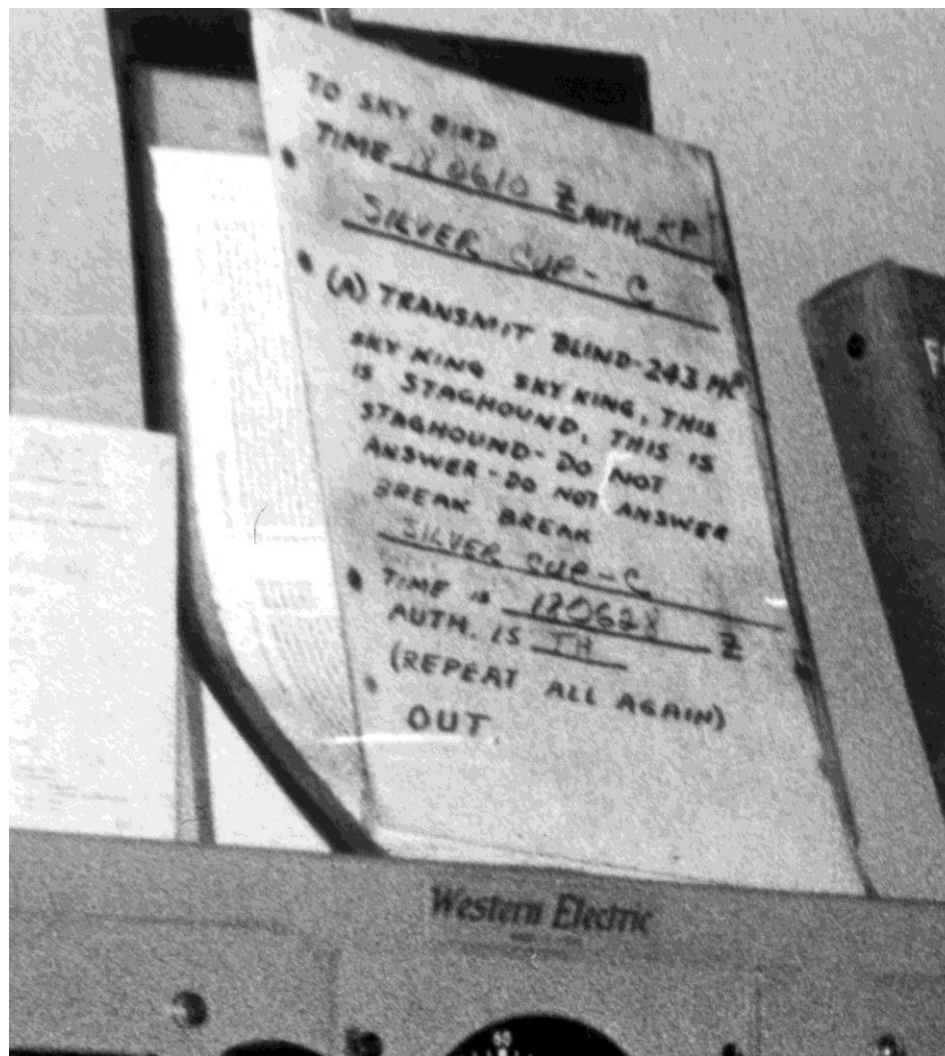 TO SKY BIRD
TIME 180610 Z AUTH. KP
SILVER CUP - C
(A) TRANSMIT BLIND-243
SKY KING SKY KING, THIS
IS STAGHOUND, THIS IS
STAGHOUND - DO NOT
ANSWER - DO NOT ANSWER
BREAK BREAK
SILVER CUP - C
TIME IS 180628 Z
AUTH. IS TH
(REPEAT ALL AGAIN)
OUT.
Western Electric